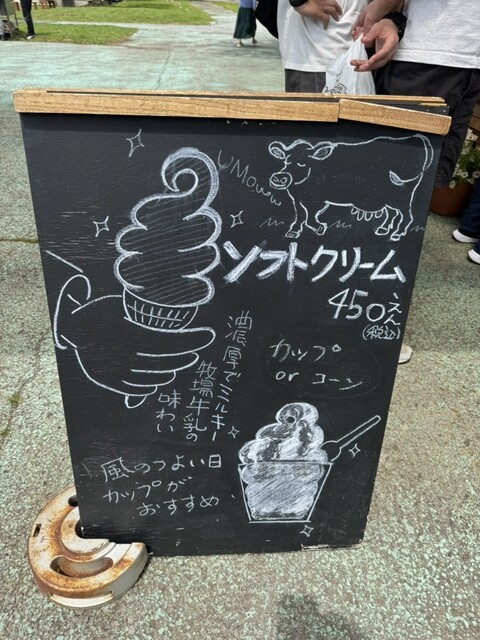 Mow
ソフトクリーム
450えん
(税込)
カップ
or コーン
濃厚でミルキー
牧場牛乳の
味わい
風のつよい日
カップが
おすすめ.